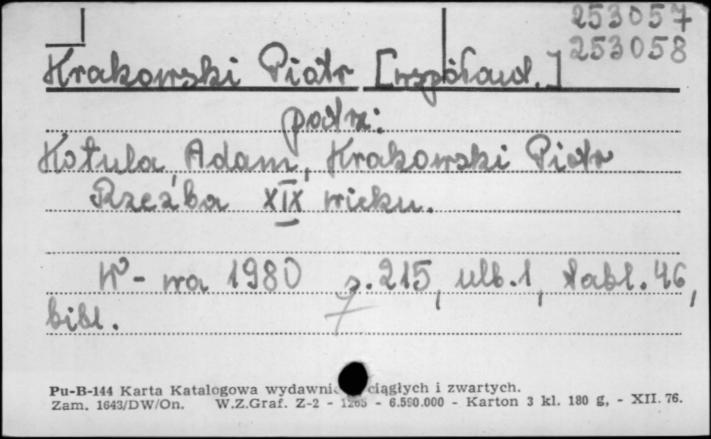 253057
253058
Krakowski Piotr [współaut.]
patrz:
Kotula, Adam, Krakowski Piotr
Rzeźba XIX wieku.
W-wa 1980 s. 215, ulb. 1, tabl. 46,
bibl.
Pu-B-144 Karta Katalogowa wydawni ciągłych i zwartych.
Zam. 1643/DW/On. W.Z.Graf. Z-2 - 1265 - 6.590.000 - Karton 3 kl. 180 g, - XII. 76.